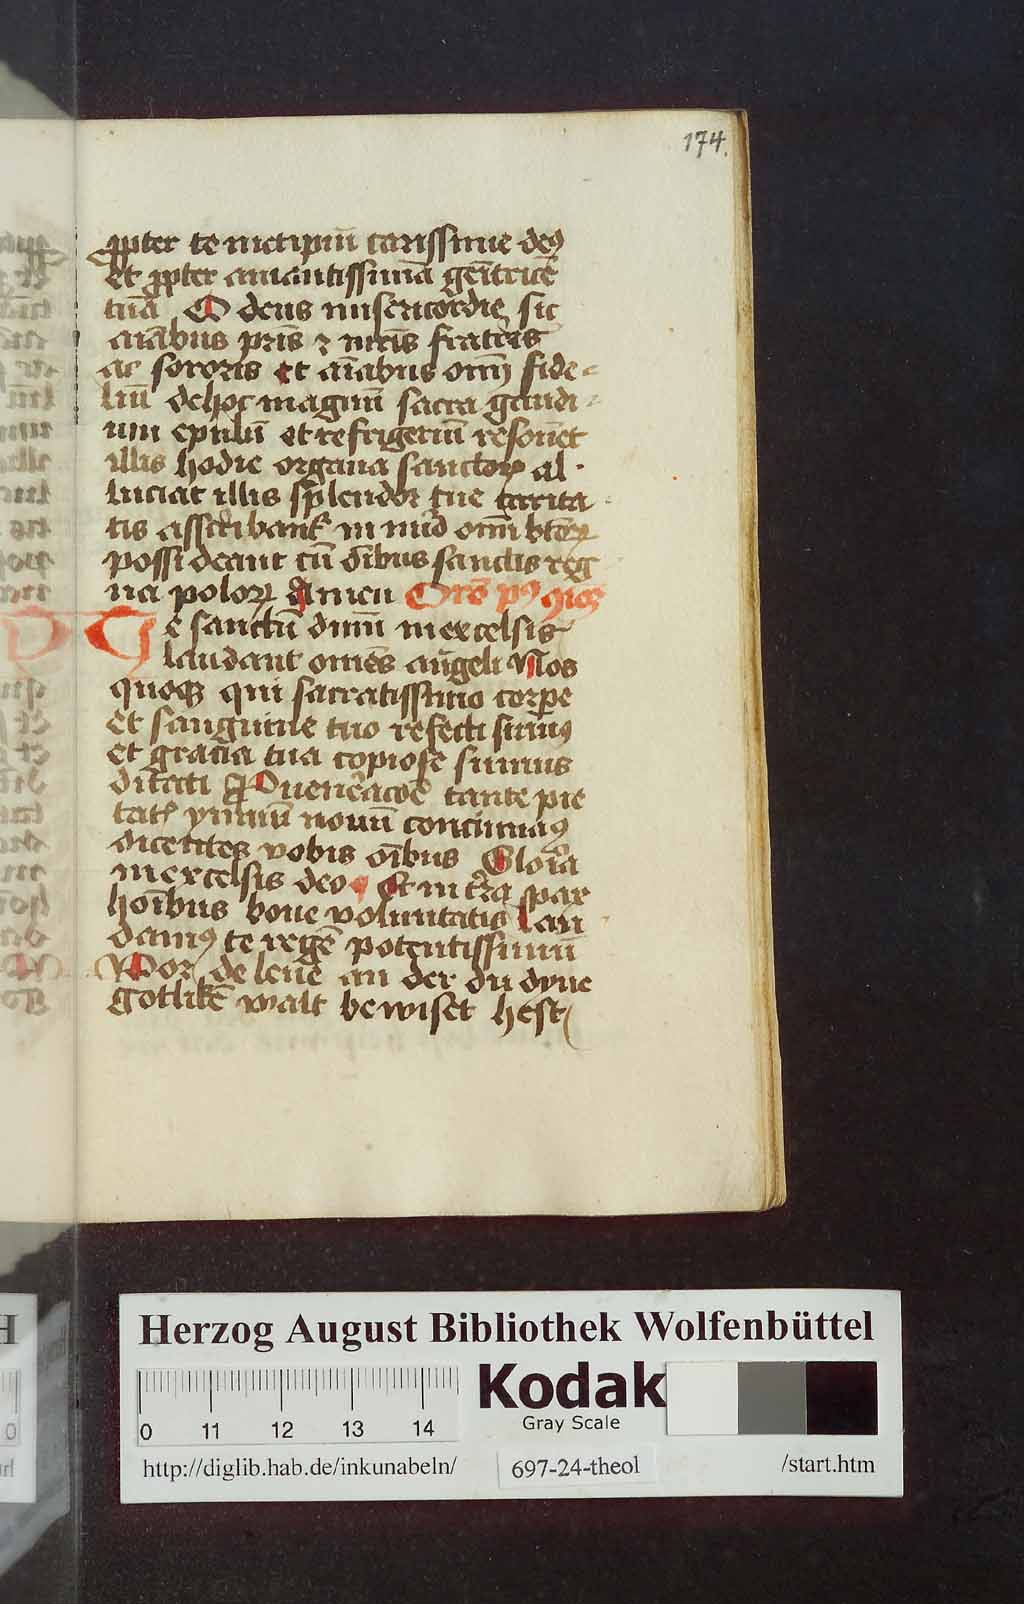 174.
ꝓpter te metipm̄ carissime deꝰ
et ꝓpter amantissimā genitricē
tuā O deus misericordie sic
aīabus pris ⁊ mris fratris
ac sororis et aīabus oīm fide-
liū de hoc magnū sacra gaudi-
um epulū et refrigeriū resonet
illis hodie organa sanctoꝝ al-
luceat illis splendor tue carita-
tis ass in oīm
possideant cū oībus sanctis reg
na poloꝝ Amen
Te sanctū dn̄m in excelsis
laudant omēs angeli Nos
quoqꝫ qui sacratissimo corpe
et sanguine tuo refecti sumꝰ
et gracia tua copiose sumus
ditati tante pie
tatꝭ ymnū nouū concinimꝰ
dicentes vobis oībus Gloria
in excelsis deo Et in tra pax
hoībus bone voluntatis Lau
damꝰ te regē potentissimū
Vor de leue an der du dyne
gotlikē walt bewiset hest
Herzog August Bibliothek Wolfenbüttel
0 11 12 13 14
Kodak
Gray Scale
http://diglib.hab.de/inkunabeln/ 697-24-theol /start.htm